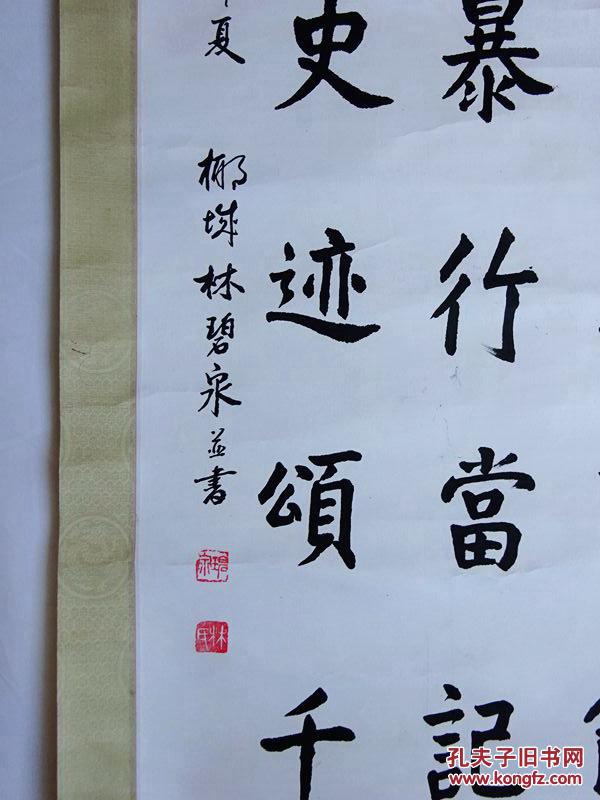 暴行當記
史迹頌千
夏
椰城林碧泉並書
碧泉
林氏
孔夫子旧书网
www.kongfz.com